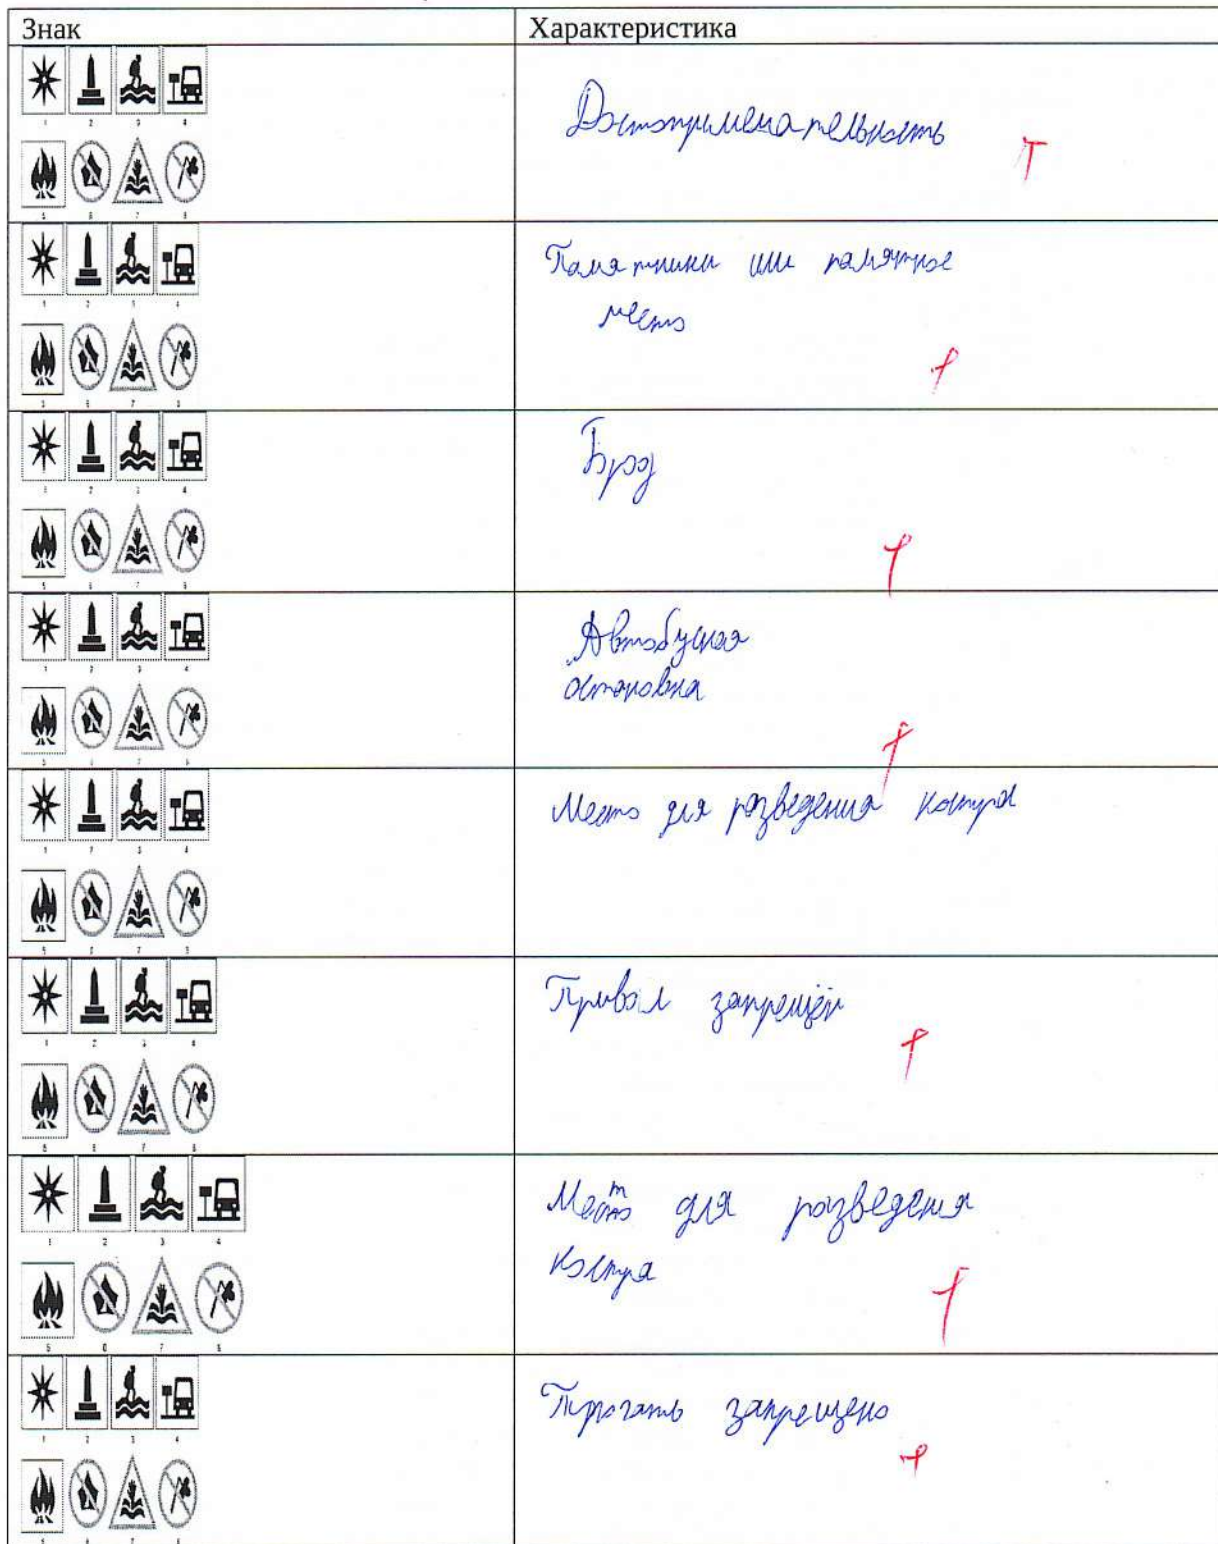 Знак
Характеристика
1 2 3 4
5 6 7 8
Достопримечательность
1 2 3 4
5 6 7 8
Памятники или памятное
место
1 2 3 4
5 6 7 8
Брод
1 2 3 4
5 6 7 8
Автобусная
остановка
1 2 3 4
5 6 7 8
Место для разведения костра
1 2 3 4
5 6 7 8
Привал запрещён
1 2 3 4
5 6 7 8
Место для разведения
костра
1 2 3 4
5 6 7 8
Трогать запрещено